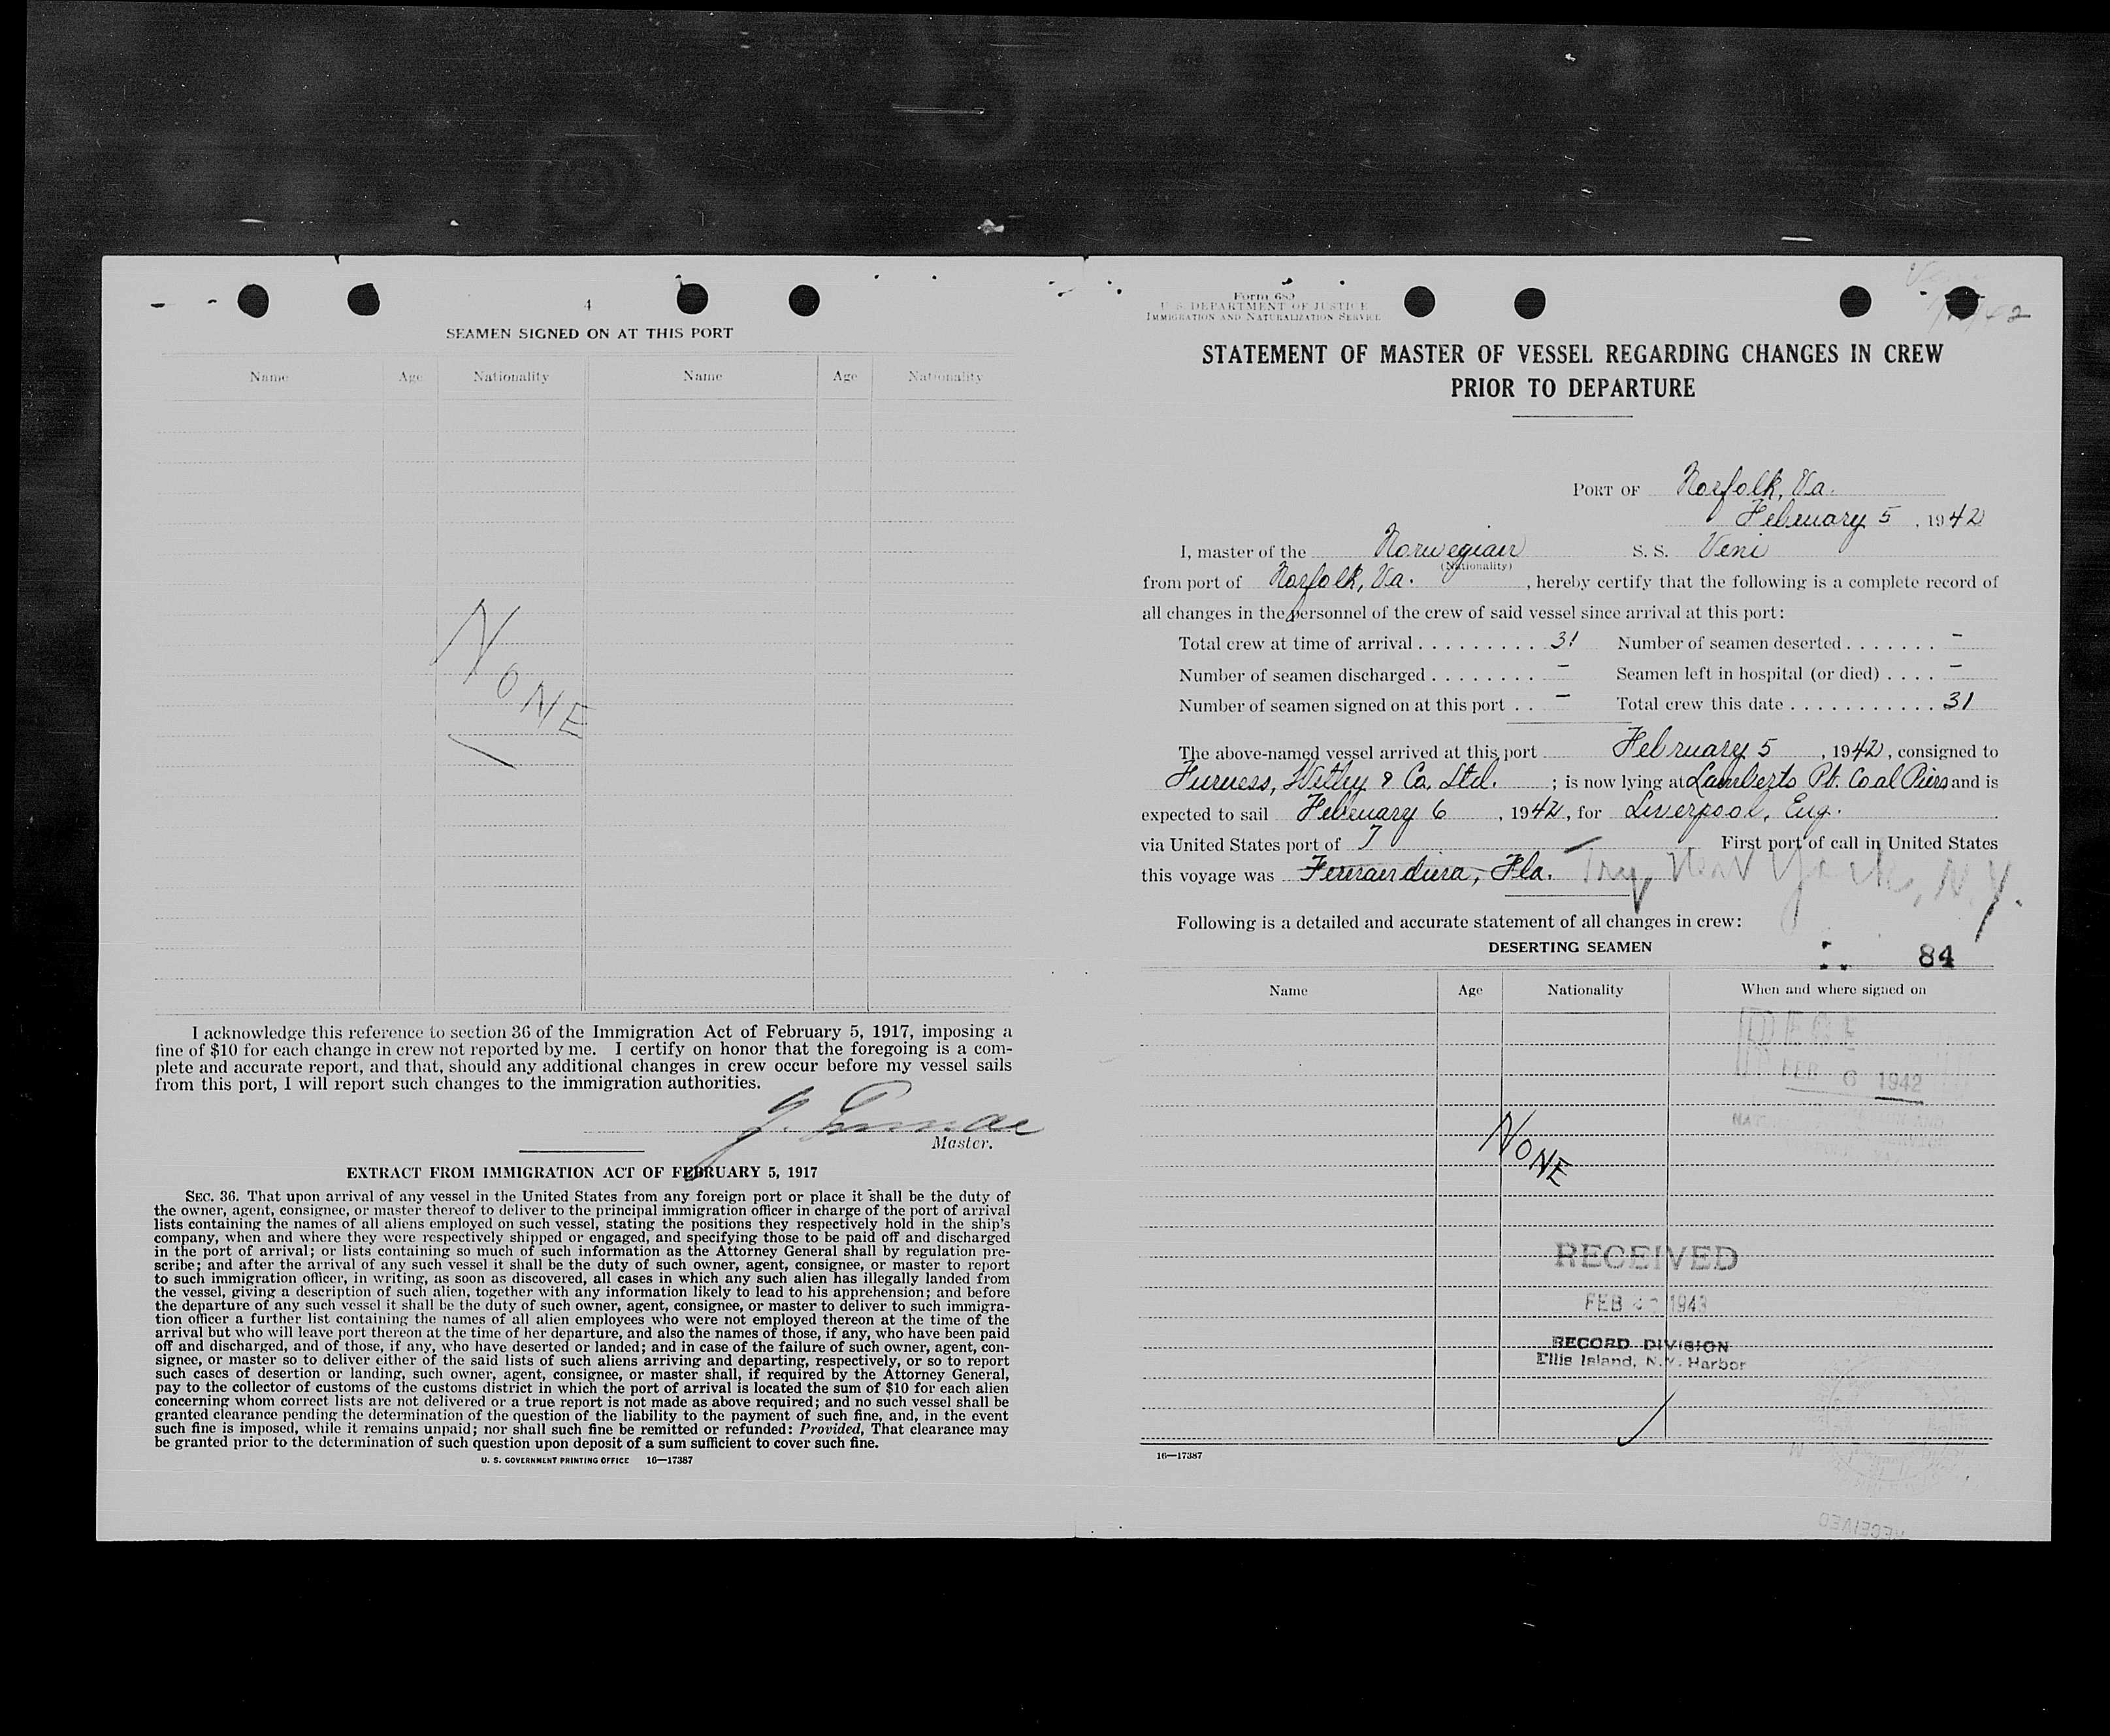 4
SEAMEN SIGNED ON AT THIS PORT
Name Age Nationality Name Age Nationality
NONE
I acknowledge this reference to section 36 of the Immigration Act of February 5, 1917, imposing a
fine of $10 for each change in crew not reported by me. I certify on honor that the foregoing is a com-
plete and accurate report, and that, should any additional changes in crew occur before my vessel sails
from this port, I will report such changes to the immigration authorities.
Master.
EXTRACT FROM IMMIGRATION ACT OF FEBRUARY 5, 1917
SEC. 36. That upon arrival of any vessel in the United States from any foreign port or place it shall be the duty of
the owner, agent, consignee, or master thereof to deliver to the principal immigration officer in charge of the port of arrival
lists containing the names of all aliens employed on such vessel, stating the positions they respectively hold in the ship's
company, when and where they were respectively shipped or engaged, and specifying those to be paid off and discharged
in the port of arrival; or lists containing so much of such information as the Attorney General shall by regulation pre-
scribe; and after the arrival of any such vessel it shall be the duty of such owner, agent, consignee, or master to report
to such immigration officer, in writing, as soon as discovered, all cases in which any such alien has illegally landed from
the vessel, giving a description of such alien, together with any information likely to lead to his apprehension; and before
the departure of any such vessel it shall be the duty of such owner, agent, consignee, or master to deliver to such immigra-
tion officer a further list containing the names of all alien employees who were not employed thereon at the time of the
arrival but who will leave port thereon at the time of her departure, and also the names of those, if any, who have been paid
off and discharged, and of those, if any, who have deserted or landed; and in case of the failure of such owner, agent, con-
signee, or master so to deliver either of the said lists of such aliens arriving and departing, respectively, or so to report
such cases of desertion or landing, such owner, agent, consignee, or master shall, if required by the Attorney General,
pay to the collector of customs of the customs district in which the port of arrival is located the sum of $10 for each alien
concerning whom correct lists are not delivered or a true report is not made as above required; and no such vessel shall be
granted clearance pending the determination of the question of the liability to the payment of such fine, and, in the event
such fine is imposed, while it remains unpaid; nor shall such fine be remitted or refunded: Provided, That clearance may
be granted prior to the determination of such question upon deposit of a sum sufficient to cover such fine.
U. S. GOVERNMENT PRINTING OFFICE 16—17387
Form 689
U. S. DEPARTMENT OF JUSTICE
IMMIGRATION AND NATURALIZATION SERVICE
Veni
STATEMENT OF MASTER OF VESSEL REGARDING CHANGES IN CREW
PRIOR TO DEPARTURE
PORT OF Norfolk, Va.
February 5, 1942
I, master of the Norwegian S. S. Veni
(Nationality)
from port of Norfolk, Va. , hereby certify that the following is a complete record of
all changes in the personnel of the crew of said vessel since arrival at this port:
Total crew at time of arrival . . . . . . . . . . 31 Number of seamen deserted . . . . . . . –
Number of seamen discharged . . . . . . . . – Seamen left in hospital (or died) . . . . –
Number of seamen signed on at this port . . – Total crew this date . . . . . . . . . . . 31
The above-named vessel arrived at this port February 5, 1942, consigned to
Furness, Withy & Co. Ltd. ; is now lying at Lamberts Pt. Coal Piers and is
expected to sail February 6, 1942, for Liverpool, Eng.
via United States port of First port of call in United States
this voyage was Fernandina, Fla. New York, N.Y.
Following is a detailed and accurate statement of all changes in crew:
DESERTING SEAMEN
84
Name Age Nationality When and where signed on
FEB 6 1942
NONE
RECEIVED
FEB 1943
RECORD DIVISION
Ellis Island, N.Y. Harbor
16—17387
RECEIVED